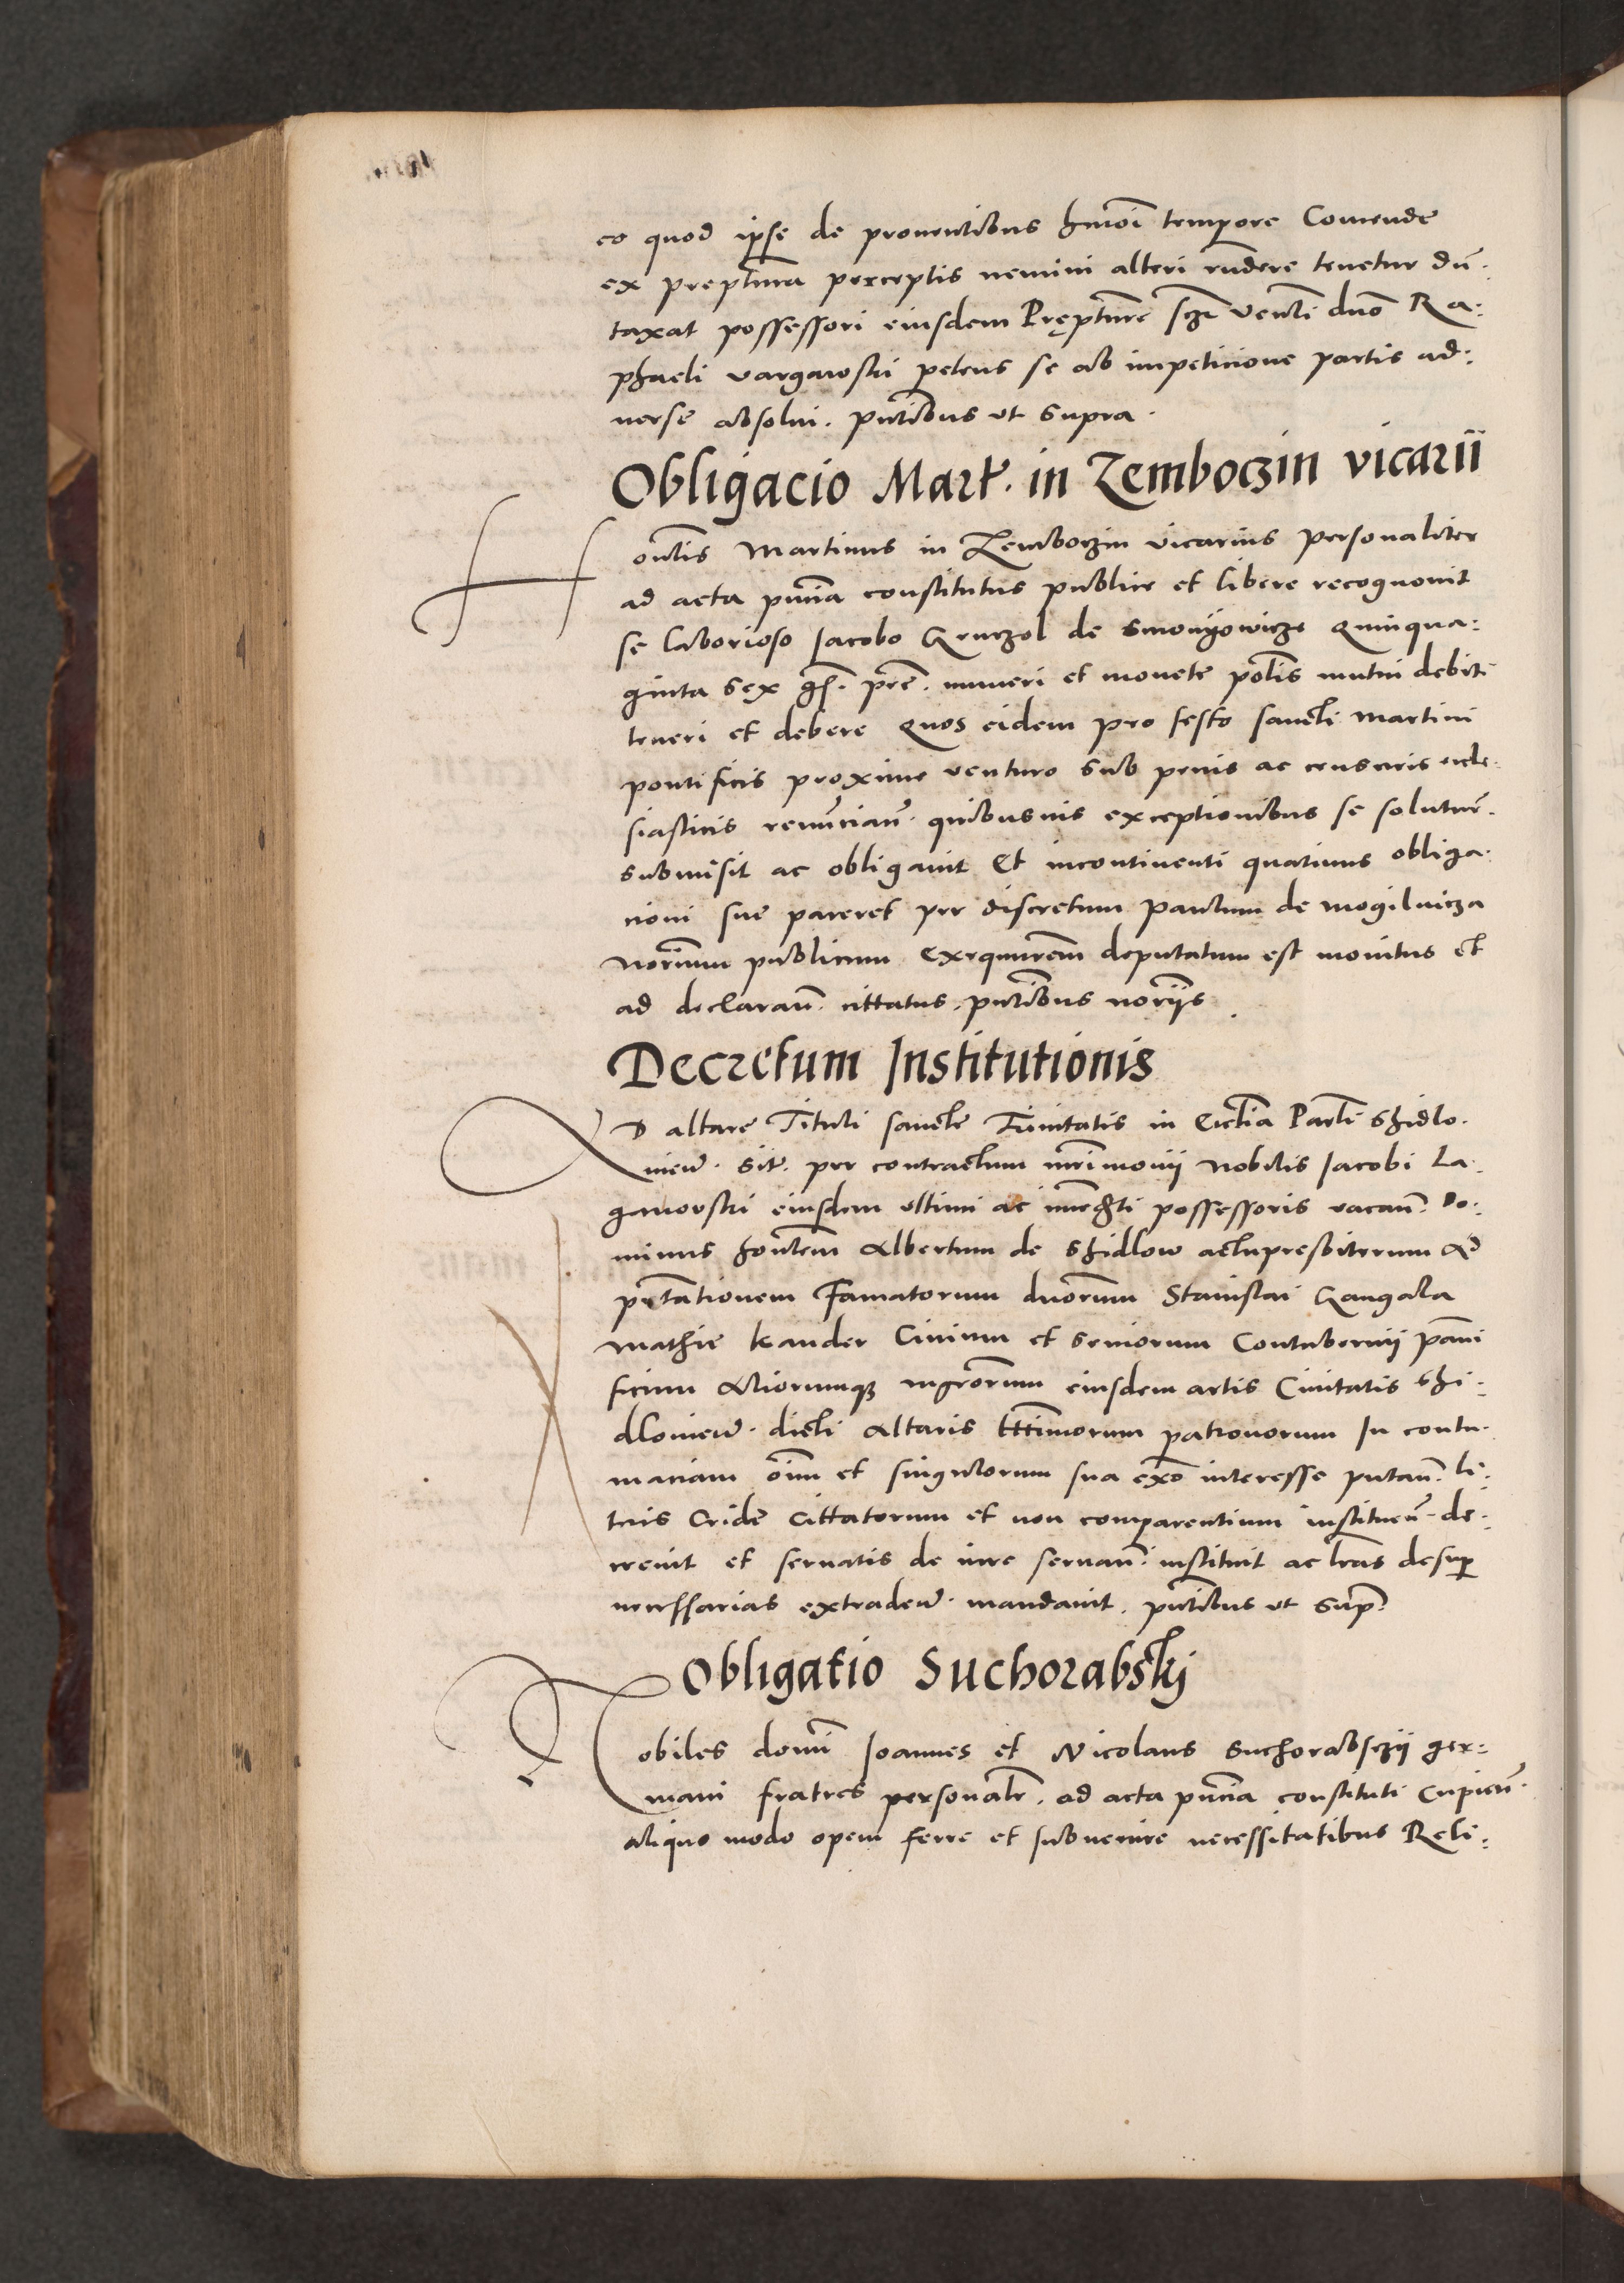 eo quod ipse de proventibus hmōi tempore Comende
ex prepturā perceptis nemini alteri rndere tenetur dū-
taxat possessori eiusdem Prępturē Venli dno Ra:
phaeli vargawski petens se ab impeticione partis ad:
verse absolvi. pntibus ut supra.
Obligacio Mart. in Zemboczin vicarii
Honlis Martinus in Zemboczin vicarius personaliter
ad acta pntia constitutus publice et libere recognovit
se laborioso Jacobo Gruczol de Smonyowicze Quinqua:
ginta sex gs. pre. numeri et monete polis mutui debit
teneri et debere Quos eidem pro festo sancti Martini
pontificis proxime venturo sub penis ac censuris eccle-
siasticis renūcian. quibusvis exceptionibus se soluturū.
submisit ac obligavit Et incontinenti quatinus obliga-
cioni sue pareret per discretum Paulum de Mogilnicza
Norium publicum deputatum est monitus et
ad declaran. cittatus. pntibus noriis.
Decretum Institutionis
AD altare Tituli sancte Trinitatis in Ecclia Parli Shidlo.
vien. sit. per contractum mrimonii Nobilis Jacobi La.
ganovski eiusdem ultimi ac possessoris vacan. Do.
minus honlem Albertum de Shidlow actu presbiterum Ad
pntationem Famatorum dnorum Stanislai Gangala
Mathie kander Civium et seniorum Contubernii pani
ficum Aliorumq mgrorum eiusdem artis Civitatis Shi-
dlovien. dicti Altaris lttimorum patronorum In contu-
matiam oim et singulorum sua interesse putan. li-
teris Cride Cittatorum et non comparentium instituen. de-
crevit et servatis de iure servan. instituit ac lras desup
necessarias extraden. mandavit. pntibus ut sup.
Obligatio Suchorabski
Nobiles domi Joannes et Nicolaus Suchorabsczii ger:
mani fratres personalr. ad acta pntia constituti Cupien.
aliquo modo opem ferre et subvenire necessitatibus Reli: